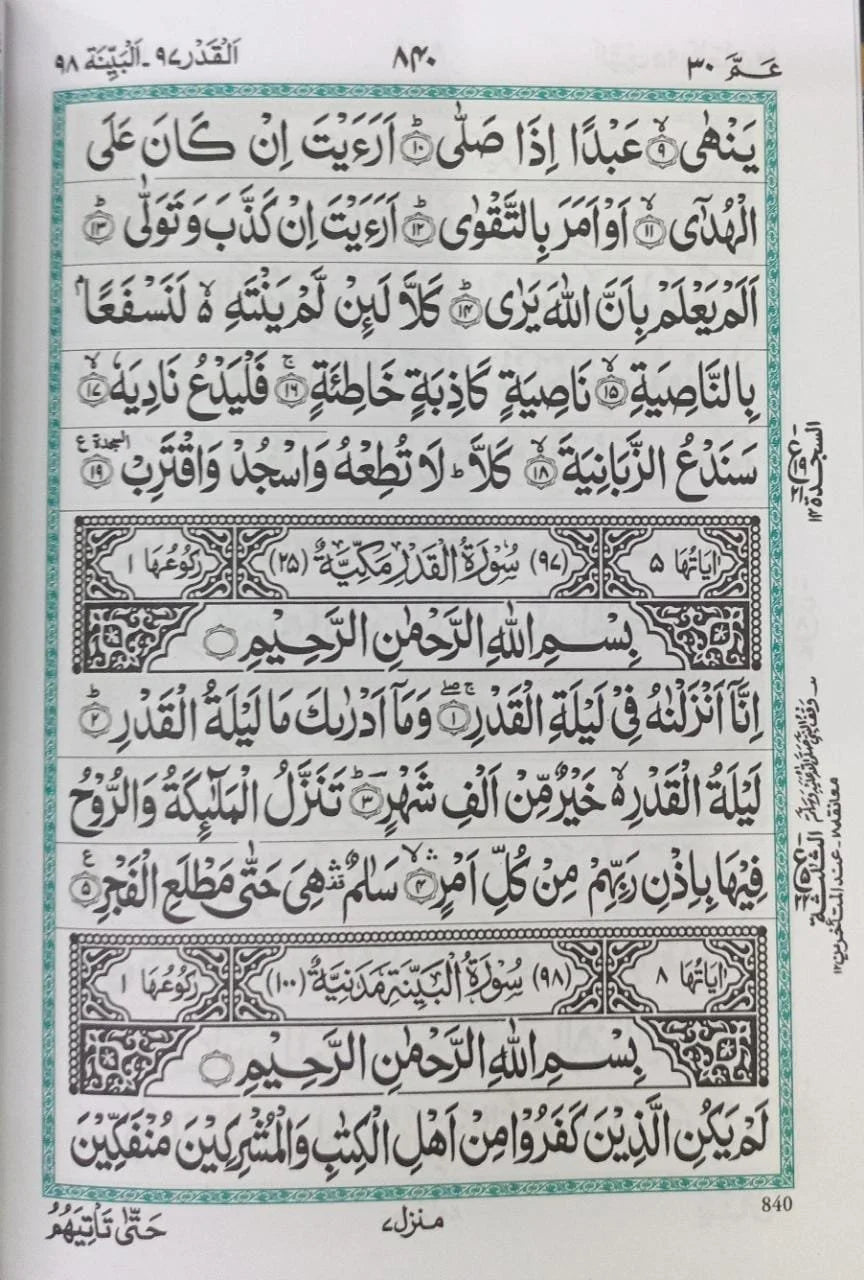 عَمَّ ٣٠
٨٤٠
اَلْقَدْر ٩٧ - اَلْبَيِّنَة ٩٨
يَنْهٰىۙ‏ ﴿۹﴾ عَبْدًا اِذَا صَلّٰىؕ‏ ﴿۱۰﴾ اَرَءَيْتَ اِنْ كَانَ عَلَى
الْهُدٰٓىۙ‏ ﴿۱۱﴾ اَوْ اَمَرَ بِالتَّقْوٰىؕ‏ ﴿۱۲﴾ اَرَءَيْتَ اِنْ كَذَّبَ وَ تَوَلّٰىؕ‏ ﴿۱۳﴾
اَلَمْ يَعْلَمْ بِاَنَّ اللّٰهَ يَرٰىؕ‏ ﴿۱۴﴾ كَلَّا لَئِنْ لَّمْ يَنْتَهِ ۙ لَنَسْفَعًۢا
بِالنَّاصِيَةِۙ‏ ﴿۱۵﴾ نَاصِيَةٍ كَاذِبَةٍ خَاطِئَةٍۚ‏ ﴿۱۶﴾ فَلْيَدْعُ نَادِيَهٗۙ‏ ﴿۱۷﴾
سَنَدْعُ الزَّبَانِيَةَۙ‏ ﴿۱۸﴾ كَلَّاؕ لَا تُطِعْهُ وَاسْجُدْ وَاقْتَرِبْ ﴿۱۹﴾ السجدة ع
السجدة ١٤
ع ١٩ ٢١
اٰيَاتُهَا ٥
(٩٧) سُوْرَةُ الْقَدْرِ مَكِّيَّةٌ (٢٥)
رُكُوْعُهَا ١
بِسْمِ اللّٰهِ الرَّحْمٰنِ الرَّحِيْمِ
اِنَّاۤ اَنْزَلْنٰهُ فِىْ لَيْلَةِ الْقَدْرِۚۖ‏ ﴿۱﴾ وَمَاۤ اَدْرٰٮكَ مَا لَيْلَةُ الْقَدْرِؕ‏ ﴿۲﴾
لَيْلَةُ الْقَدْرِ ۙ خَيْرٌ مِّنْ اَلْفِ شَهْرٍؕ‏ ﴿۳﴾ تَنَزَّلُ الْمَلٰٓئِكَةُ وَالرُّوْحُ
فِيْهَا بِاِذْنِ رَبِّهِمْ مِنْ كُلِّ اَمْرٍۙ‏ ﴿۴﴾ سَلٰمٌ هِىَ حَتّٰى مَطْلَعِ الْفَجْرِ ﴿۵﴾ ع
الثلثة
معانقه ١٨ عند المتأخرين ١٢
اٰيَاتُهَا ٨
(٩٨) سُوْرَةُ الْبَيِّنَةِ مَدَنِيَّةٌ (١٠٠)
رُكُوْعُهَا ١
بِسْمِ اللّٰهِ الرَّحْمٰنِ الرَّحِيْمِ
لَمْ يَكُنِ الَّذِيْنَ كَفَرُوْا مِنْ اَهْلِ الْكِتٰبِ وَالْمُشْرِكِيْنَ مُنْفَكِّيْنَ
840
منزل ٧
حَتّٰى تَاْتِيَهُمُ